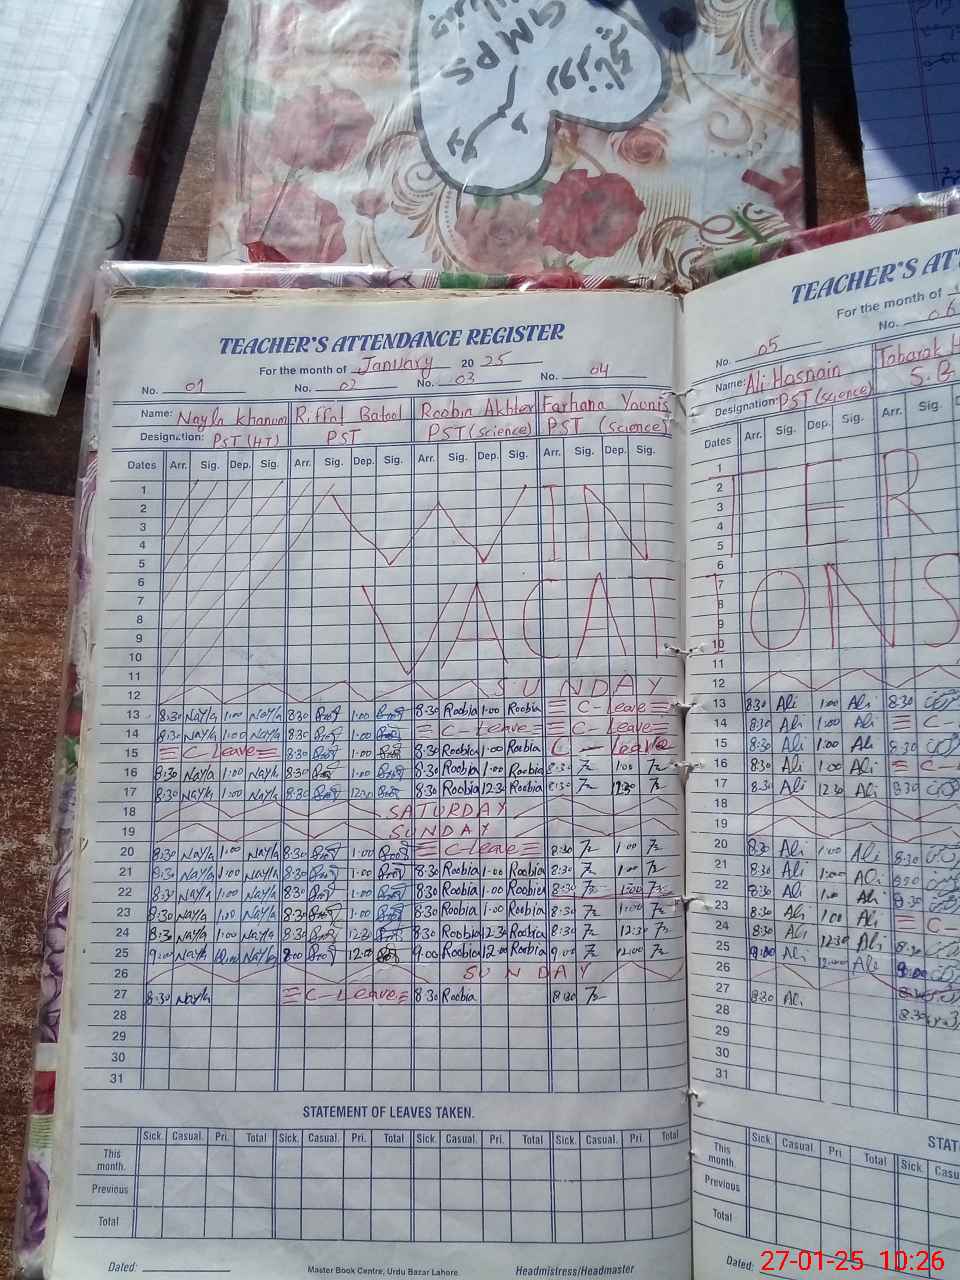 GMPS
TEACHER'S ATTENDANCE REGISTER
For the month of January 2025
No. 01 No. 02 No. 03 No. 04
Name: Nayla Khanum Riffat Batool Roobia Akhter Farhana Younis
Designation: PST (HT) PST PST (science) PST (science)
Dates Arr. Sig. Dep. Sig. Arr. Sig. Dep. Sig. Arr. Sig. Dep. Sig. Arr. Sig. Dep. Sig.
1
2
3
4
5
WIN
6
7
8
9
10
VACATI
11
12 SUNDAY
13 8:30 Nayla 1:00 Nayla 8:30 1:00 8:30 Roobia 1:00 Roobia C-Leave
14 8:30 Nayla 1:00 Nayla 8:30 1:00 C-Leave C-Leave
15 C-Leave 8:30 1:00 8:30 Roobia 1:00 Roobia C-Leave
16 8:30 Nayla 1:00 Nayla 8:30 1:00 8:30 Roobia 1:00 Roobia 8:30 1:00
17 8:30 Nayla 1:00 Nayla 8:30 12:30 8:30 Roobia 12:30 Roobia 8:30 12:30
18 SATURDAY
19 SUNDAY
20 8:30 Nayla 1:00 Nayla 8:30 1:00 C-Leave 8:30 1:00
21 8:30 Nayla 1:00 Nayla 8:30 1:00 8:30 Roobia 1:00 Roobia 8:30 1:00
22 8:30 Nayla 1:00 Nayla 8:30 1:00 8:30 Roobia 1:00 Roobia 8:30 1:00
23 8:30 Nayla 1:00 Nayla 8:30 1:00 8:30 Roobia 1:00 Roobia 8:30 1:00
24 8:30 Nayla 1:00 Nayla 8:30 12:30 8:30 Roobia 12:30 Roobia 8:30 12:30
25 9:00 Nayla Nayla 12:00 9:00 Roobia 12:00 Roobia 9:00 12:00
26 SUNDAY
27 8:30 Nayla C-Leave 8:30 Roobia 8:30
28
29
30
31
STATEMENT OF LEAVES TAKEN.
Sick. Casual. Pri. Total Sick. Casual. Pri. Total Sick. Casual. Pri. Total Sick. Casual. Pri. Total
This month.
Previous
Total
Dated: Master Book Centre, Urdu Bazar Lahore. Headmistress/Headmaster
TEACHER'S AT
For the month of
No. 05 No. 06
Name: Ali Hasnain Tabarak H
Designation: PST (science) S.B
Dates Arr. Sig. Dep. Sig. Arr. Sig.
1
2
3
4
5
TER
6
7
8
9
10
ONS
11
12
13 8:30 Ali 1:00 Ali 8:30
14 8:30 Ali 1:00 Ali C-
15 8:30 Ali 1:00 Ali 8:30
16 8:30 Ali 1:00 Ali C-
17 8:30 Ali 12:30 Ali 8:30
18
19
20 8:30 Ali 1:00 Ali 8:30
21 8:30 Ali 1:00 Ali 8:30
22 8:30 Ali 1:00 Ali 8:30
23 8:30 Ali 1:00 Ali C-
24 8:30 Ali 12:30 Ali 8:30
25 9:00 Ali 12:00 Ali 9:00
26
27 8:30 Ali 8:30
28
29
30
31
STAT
Sick. Casual. Pri Total Sick. Casu
This month.
Previous
Total
Dated:
27-01-25 10:26